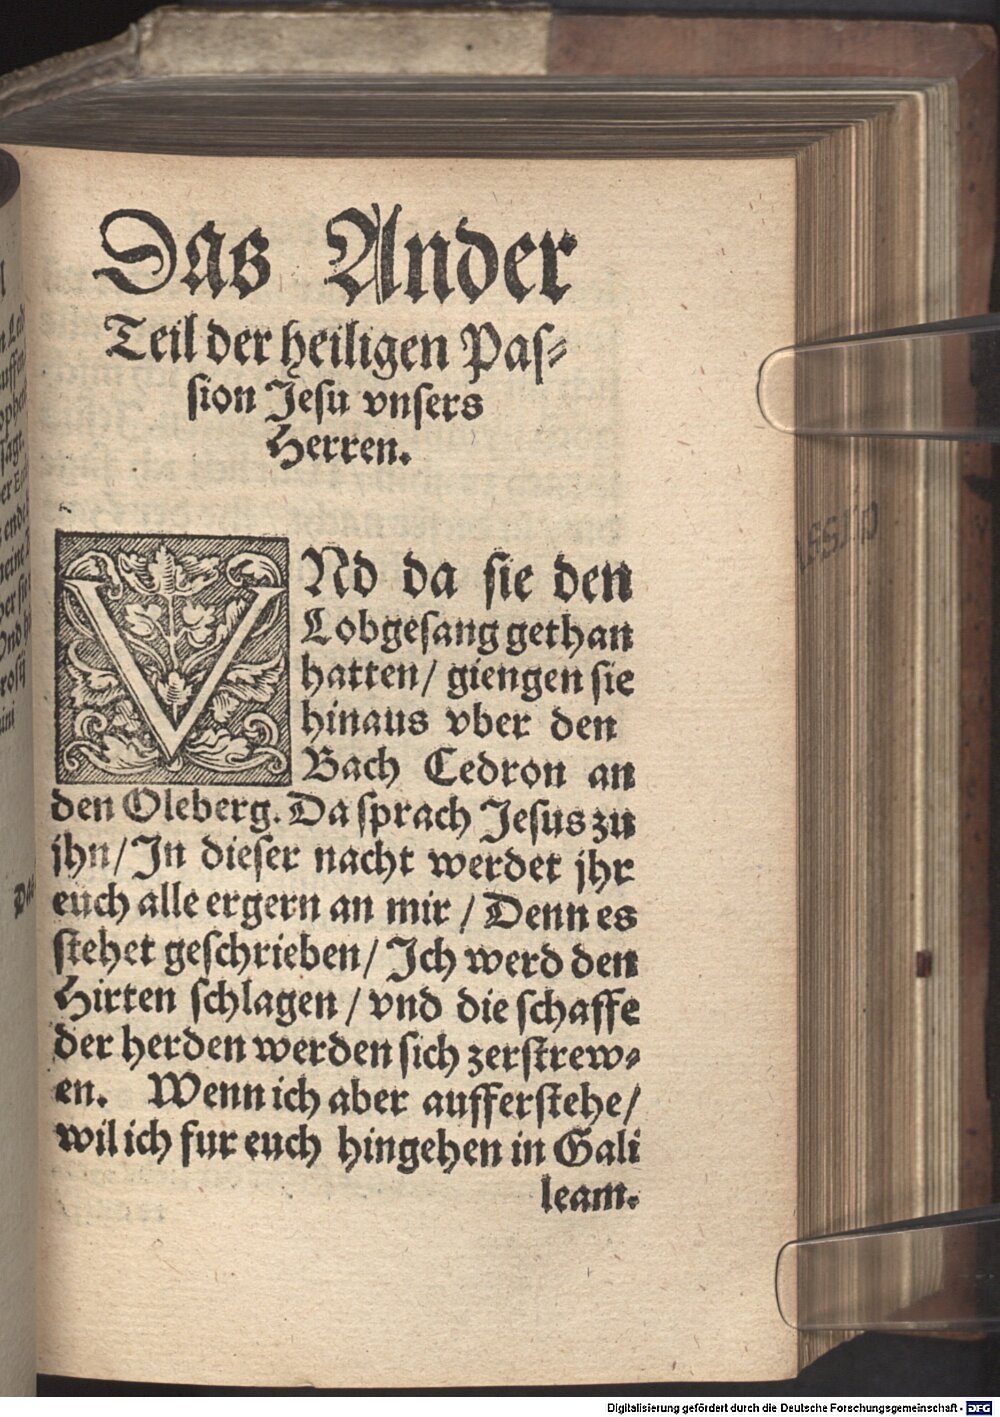 Das Ander
Teil der heiligen Pas⸗
sion Jesu vnsers
Herren.
VNd da sie den
Lobgesang gethan
hatten/ giengen sie
hinaus vber den
Bach Cedron an
den Oleberg. Da sprach Jesus zu
jhn/ In dieser nacht werdet jhr
euch alle ergern an mir / Denn es
stehet geschrieben/ Ich werd den
Hirten schlagen / vnd die schaffe
der herden werden sich zerstrew⸗
en. Wenn ich aber aufferstehe/
wil ich fur euch hingehen in Gali
leam.
Digitalisierung gefördert durch die Deutsche Forschungsgemeinschaft - DFG